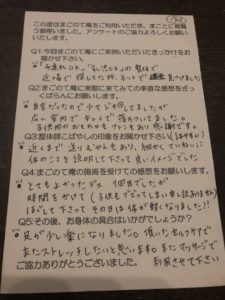 OKO
この度はまごのて庵をご利用いただき、まことに有難
う御座いました。アンケートのご協力よろしくお願い
いたします。
Q1.今回まごのて庵にご来訪いただいたきっかけをお
聞かせ下さい。
"子連れOK"、"乳児OK"の整体で
近い場で探してた所、ネットで 見つけました
Q2.まごのて庵に実際に来てみての率直な感想をざっ
くばらんにお願いします。
自宅だったので少しドキドキしてましたが
広い室内で キレイで落ちついてました。
子供用のおもちゃやフトンもあり、感謝です。
Q3.整体師こばやしの印象をお聞かせ下さい。
近くまで送り迎えもあり、細かくていねいに
体のことを説明して下さって良いイメージでした
Q4.まごのて庵の施術を受けての感想をお願いします。
とてもよかったデス 1回目でしたが
時間をかけて(子供もグズってしまい申し訳ありません)
ほぐして下さって その日は体が軽くなりました!!
Q5.その後、お身体の具合はいかがでしょうか?
足が少し重になりました。頂いたセルフケアで
またストレッチしたいと思います。またマッサージで
ご協力ありがとうございました。 利用させて下さい